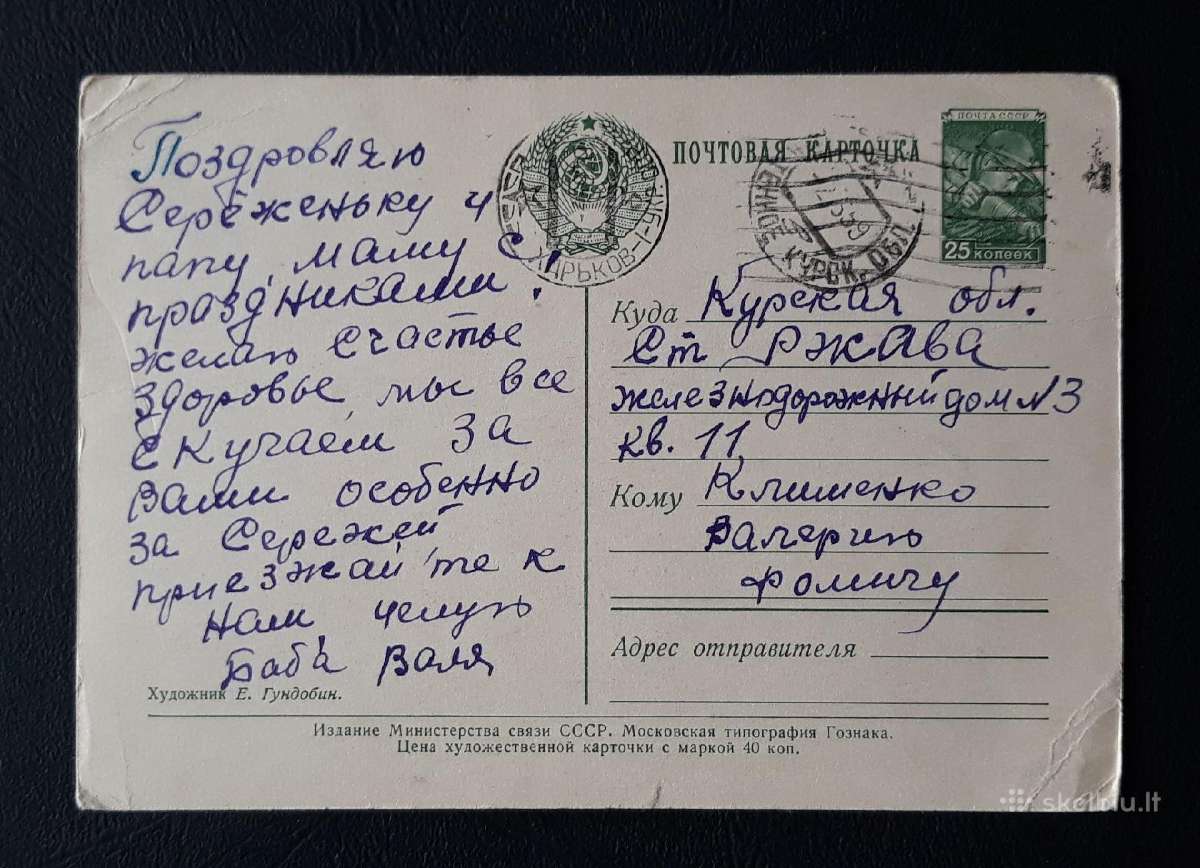 Поздровляю
Сереженьку и
папу, маму с
праздниками.
желаю счастье
здоровье мы все
скучаем за
вами особенно
за Сережей
приезжайте к
нам целую
Баба Валя
Художник Е. Гундобин.
ХАРЬКОВ-
ПОЧТОВАЯ КАРТОЧКА
КУРСК. ОБЛ.
ПОЧТА СССР
25 копеек
Куда Курская обл.
Ст Ржава
железнодорожний дом N3
кв. 11
Кому Клименко
Валерию
Фомичу
Адрес отправителя
Издание Министерства связи СССР. Московская типография Гознака.
Цена художественной карточки с маркой 40 коп.
skelbiu.lt